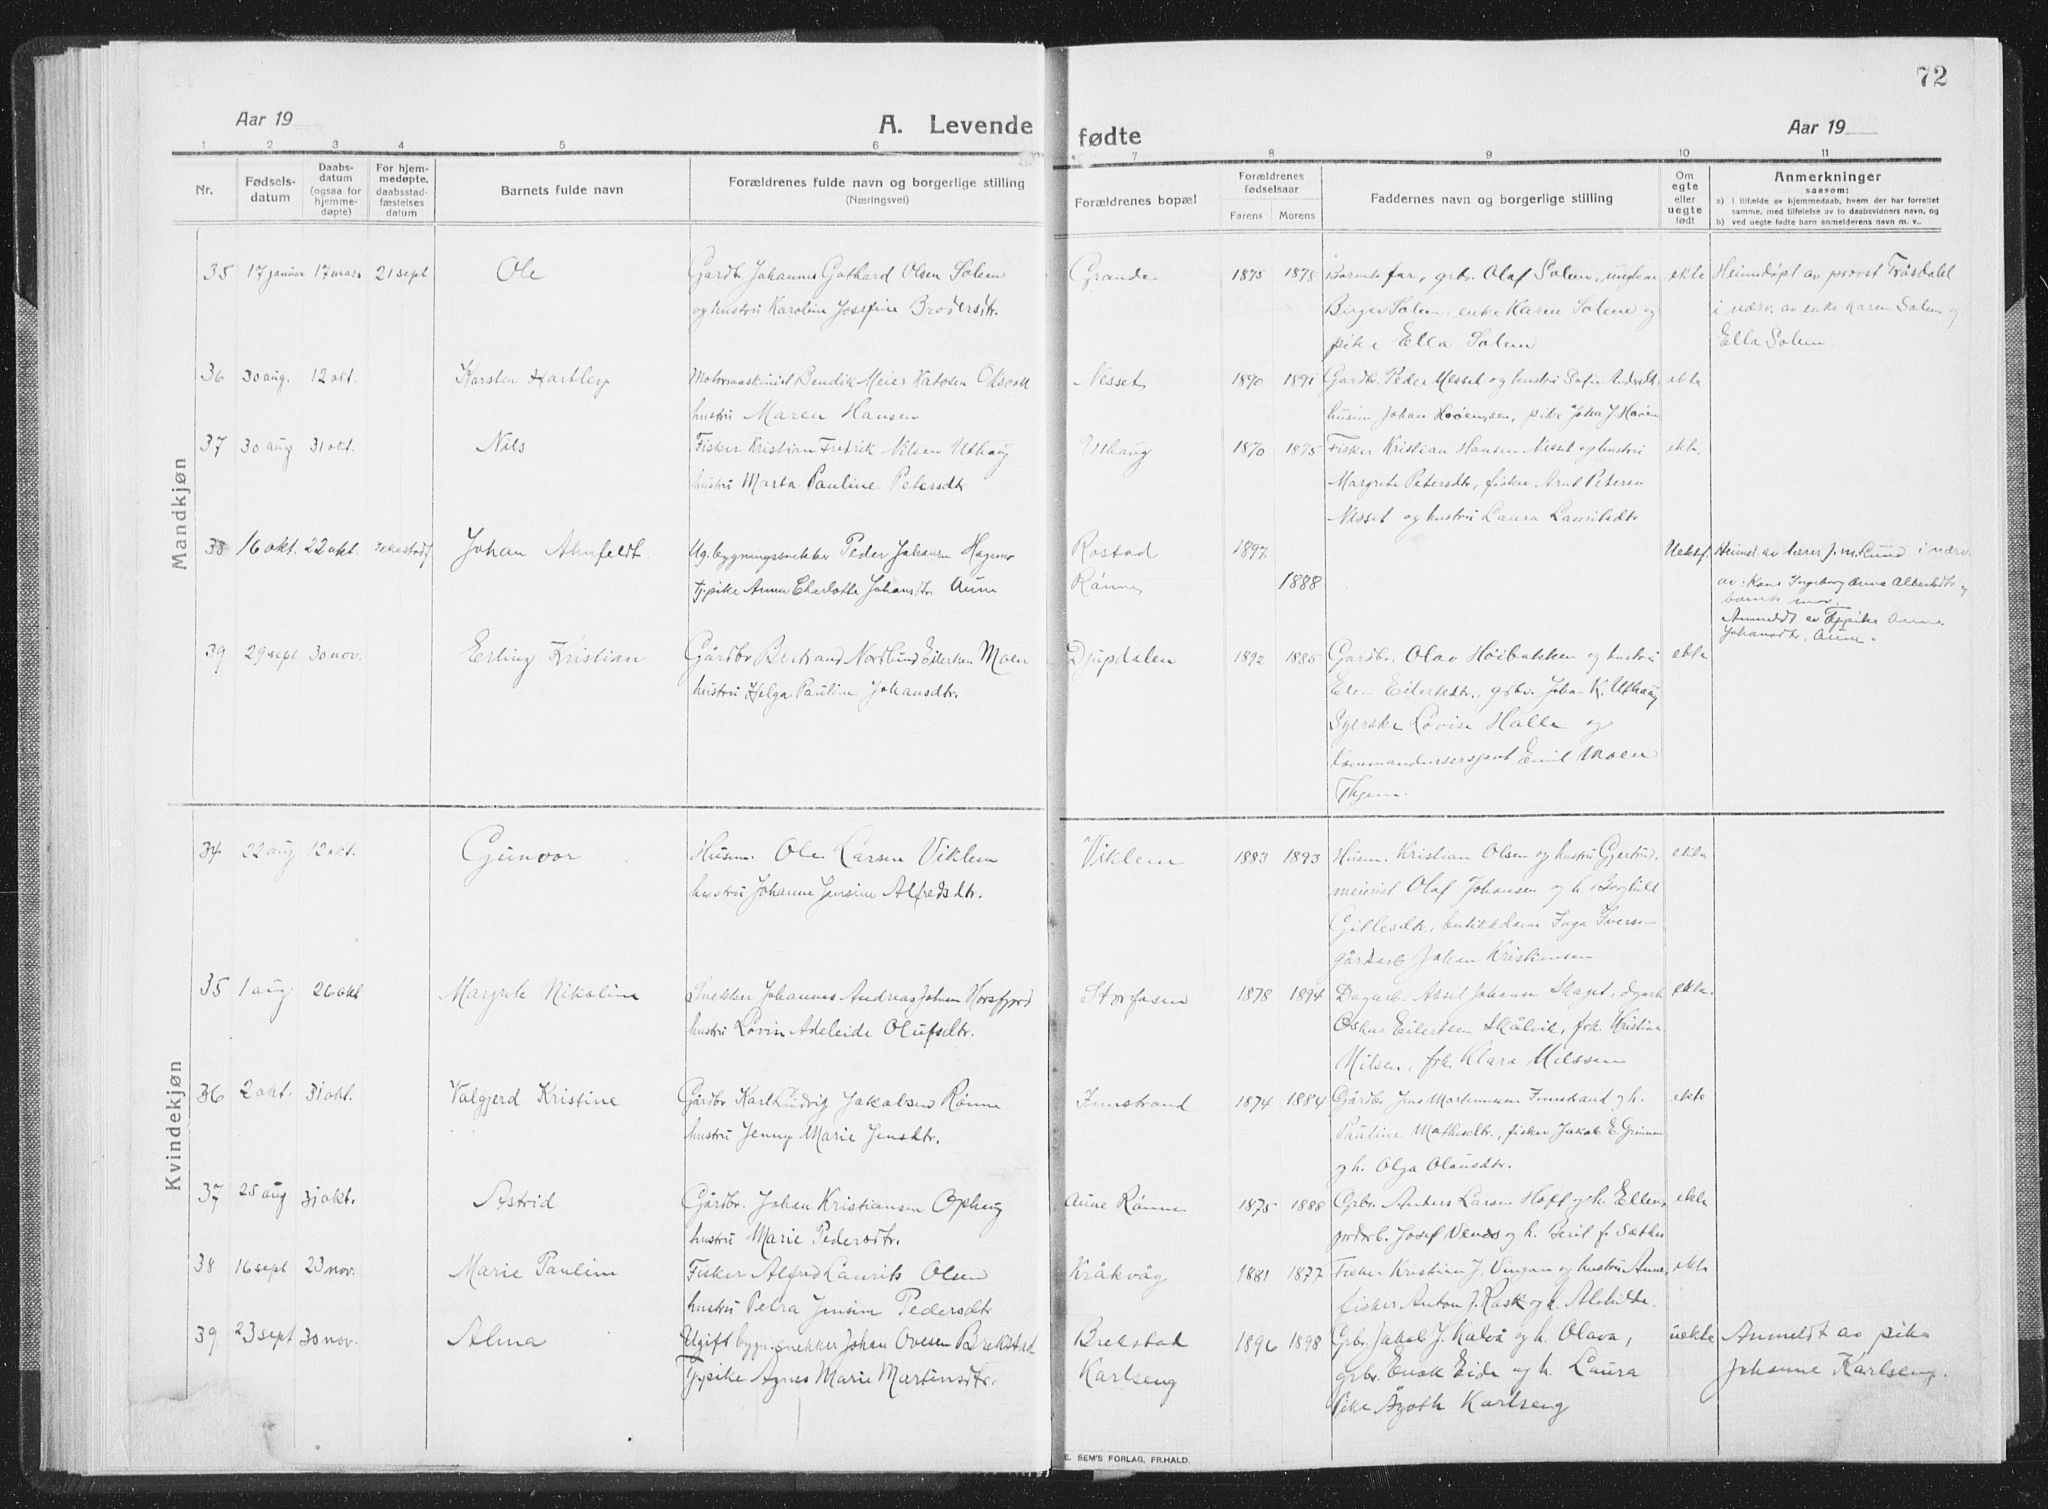 72
Aar 19
A. Levende fødte
Aar 19
1 2 3 4 5 6 7 8 9 10 11
Nr.
Fødselsdatum
Daabsdatum (ogsaa for hjemmedøpte)
For hjemmedøpte, daabsstadfæstelses datum
Barnets fulde navn
Forældrenes fulde navn og borgerlige stilling
(Næringsvei)
Forældrenes bopæl
Forældrenes fødselsaar
Farens Morens
Faddernes navn og borgerlige stilling
Om egte eller uegte født
Anmerkninger
saasom:
a) i tilfælde av hjemmedaab, hvem der har forrettet
samme, med tilføielse av to daabsvidners navn, og
b) ved uegte fødte barn anmelderens navn m. v..
Mandkjøn
35 17 januar 17 mars 21 sept Ole Gardbr. Johannes Gothard Olsen Solem Grande 1875 1878 Barnets far, grbr. Olaf Solem, ungkar ekte Heimedøpt av provst Tråsdahl
og hustru Karoline Josefine Brodersdtr. Birger Solem, enke Karen Solem og i nærv. av enke Karen Solem og
pike Ella Solem Ella Solem.
36 30 aug. 12 okt. Karsten Hartley Motormaskinist Bendik Meier Hansen Nesset 1890 1891 Gardbr. Peder Nesset og hustru Sofie ekte
hustru Maren Hansen husm Johan
37 30 aug 31 okt. Nils Fisker Kristian Fredrik Nilsen Uthaug Uthaug 1870 1875 Fisker Kristian Hansen Nesset og hustru ekte.
hustru Marta Pauline Petersdtr Margrete Petersdtr, fisker Arnt Petersen
Nesset og hustru Laura Lauritsdtr
38 16 okt. 22 okt. ikke stadf Johan Ahnfeldt. Ug. bygningssnekker Peder Johansen Hagemo Rostad 1897 Uekte Heimed. av lærer J. M. Lund i nærv.
Fpike Anna Charlotte Johansdtr. Aune Rønne 1888 av: Kone Ingeborg Anna Albertsdtr og
barnets mor.
Anmeldt av Fpike Anna
Johansdtr. Aune.
39 29 sept 30 nov. Erling Kristian Gårdbr Bertrand Nordlund Eilertsen Moen Djupdalen 1892 1885 Gardbr. Olav Høibakken og hustru ekte
hustru Helga Pauline Johansdtr. Elen Eilertsdtr., grbr. Johan K. Uthaug
Syerske Lovise Halle og
Kommandersersjant Emil Moen
Kvindekjøn
34 22 aug 12 okt. Gunvor Husm. Ole Larsen Viklem Viklem 1883 1893 Husm. Kristian Olsen og hustru Gjertrud, ekte
hustru Johanne Jensine Alfredsdtr. meierist Olaf Johansen og h. Borghill
butikkdame Inga Iversen
gårdarb Johan Kristiansen
35 1 aug 26 okt Margrete Nikoline Snekker Johannes Andreas Johnsen Horsfjord Storfosen 1878 1894 Dagarb. Aksel Johansen Skaget, dgarb ekte.
hustru Lovin Adeleide Olufsdtr. Oskar Eilertsen Skålvik, frk. Kristine
Nilsen, frk Klara Nilssen
36 2 okt. 31 okt. Valgjerd Kristine Gårdbr Karl Ludvig Jakobsen Rønne Innstrand 1874 1884 Gårdbr Jens Martinussen Innstrand og h. ekte
hustru Jenny Marie Jensdtr. Pauline Mathisdtr., fisker Jakob E. Grinnen
og h. Olga Olausdtr.
37 25 aug 31 okt. Astrid Gårdbr. Johan Kristiansen Ophaug Aune Rønne 1875 1888 Grbr. Anders Larsen Hoff og h. Ellen, ekte
hustru Marie Pedersdtr. jordarb. Josef Venes og h. Beret f. Sæther
38 16 sept 23 nov. Marie Pauline Fisker Alfred Laurits Olsen Kråkvåg 1881 1877 Fisker Kristian J. Vingan og hustru Anne, ekte
hustru Petra Jensine Pedersdtr fisker Anton J. Rask og h. Alethilde.
39 23 sept 30 nov. Alma Ugift bygn.snekker Johan Ovesen Brekstad Brekstad 1896 1898 Grbr. Jakob J. Kalvå og h. Olava, uekte Anmeldt av pike
Fpike Agnes Marie Martinsdtr. Karlseng grbr. Enok Eide og h. Laura Johanne Karlseng.
Pike Ågoth Karlseng
E. SEM'S FORLAG, FR.HALD.